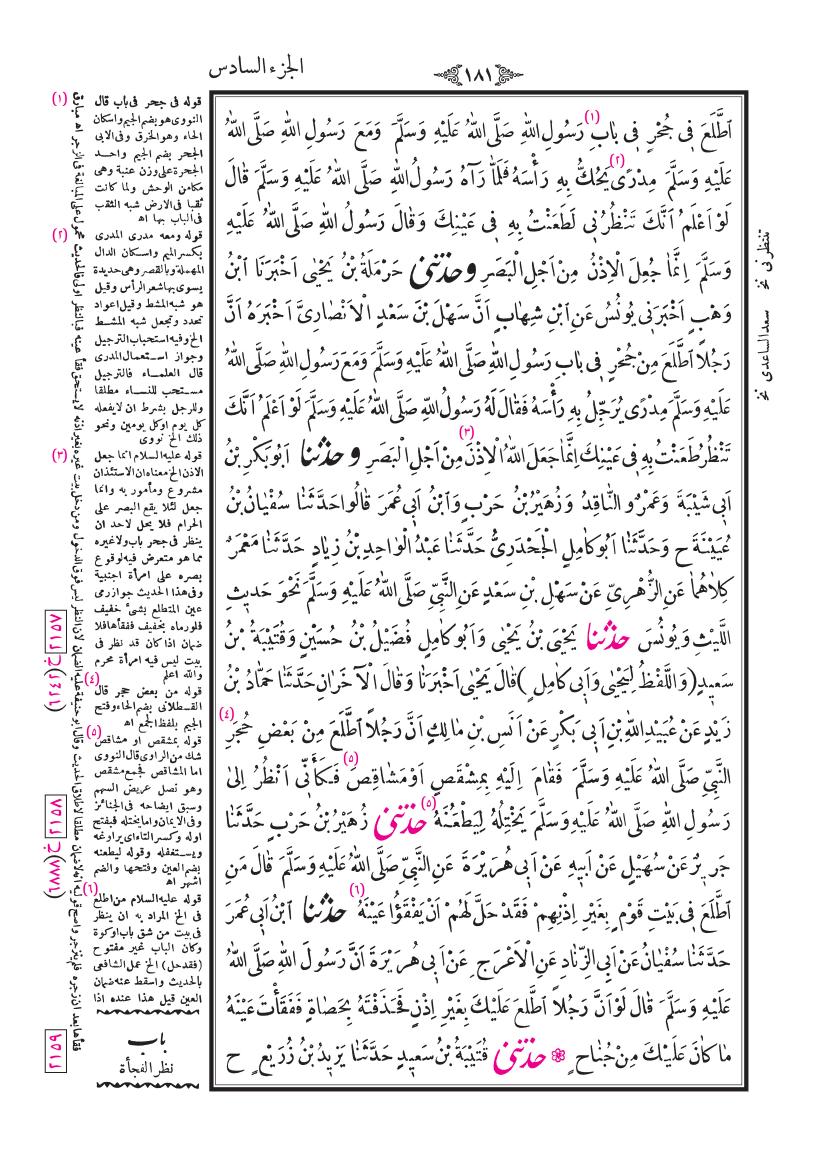 الجزء السادس
١٨١
اَطَّلَعَ فِى جُحْرٍ فِى بَابِ (١) رَسُولِ اللهِ صَلَّى اللهُ عَلَيْهِ وَسَلَّمَ وَمَعَ رَسُولِ اللهِ صَلَّى اللهُ
عَلَيْهِ وَسَلَّمَ مِدْرًى (٢) يَحُكُّ بِهِ رَأْسَهُ فَلَمَّا رَآهُ رَسُولُ اللهِ صَلَّى اللهُ عَلَيْهِ وَسَلَّمَ قَالَ
لَوْ اَعْلَمُ اَنَّكَ تَنْظُرُنِى لَطَعَنْتُ بِهِ فِى عَيْنِكَ وَقَالَ رَسُولُ اللهِ صَلَّى اللهُ عَلَيْهِ
وَسَلَّمَ اِنَّمَا جُعِلَ الْاِذْنُ مِنْ اَجْلِ الْبَصَرِ وحدثنى حَرْمَلَةُ بْنُ يَحْيٰى اَخْبَرَنَا ابْنُ
وَهْبٍ اَخْبَرَنِى يُونُسُ عَنِ ابْنِ شِهَابٍ اَنَّ سَهْلَ بْنَ سَعْدٍ الْاَنْصَارِىَّ اَخْبَرَهُ اَنَّ
رَجُلاً اَطَّلَعَ مِنْ جُحْرٍ فِى بَابِ رَسُولِ اللهِ صَلَّى اللهُ عَلَيْهِ وَسَلَّمَ وَمَعَ رَسُولِ اللهِ صَلَّى اللهُ
عَلَيْهِ وَسَلَّمَ مِدْرًى يُرَجِّلُ بِهِ رَأْسَهُ فَقَالَ لَهُ رَسُولُ اللهِ صَلَّى اللهُ عَلَيْهِ وَسَلَّمَ لَوْ اَعْلَمُ اَنَّكَ
تَنْظُرُ طَعَنْتُ بِهِ فِى عَيْنِكَ اِنَّمَا جَعَلَ اللهُ الْاِذْنَ (٣) مِنْ اَجْلِ الْبَصَرِ وحدثنا اَبُوبَكْرِ بْنُ
اَبِى شَيْبَةَ وَعَمْرٌو النَّاقِدُ وَزُهَيْرُ بْنُ حَرْبٍ وَابْنُ اَبِى عُمَرَ قَالُوا حَدَّثَنَا سُفْيَانُ بْنُ
عُيَيْنَةَ ح وَحَدَّثَنَا اَبُوكَامِلٍ الْجَحْدَرِىُّ حَدَّثَنَا عَبْدُ الْوَاحِدِ بْنُ زِيَادٍ حَدَّثَنَا مَعْمَرٌ
كِلَاهُمَا عَنِ الزُّهْرِىِّ عَنْ سَهْلِ بْنِ سَعْدٍ عَنِ النَّبِىِّ صَلَّى اللهُ عَلَيْهِ وَسَلَّمَ نَحْوَ حَدِيثِ
اللَّيْثِ وَيُونُسَ حدثنا يَحْيَى بْنُ يَحْيٰى وَاَبُوكَامِلٍ فُضَيْلُ بْنُ حُسَيْنٍ وَقُتَيْبَةُ بْنُ
سَعِيدٍ (وَاللَّفْظُ لِيَحْيٰى وَاَبِى كَامِلٍ) قَالَ يَحْيٰى اَخْبَرَنَا وَقَالَ الْآخَرَانِ حَدَّثَنَا حَمَّادُ بْنُ
زَيْدٍ عَنْ عُبَيْدِ اللهِ بْنِ اَبِى بَكْرٍ عَنْ اَنَسِ بْنِ مَالِكٍ اَنَّ رَجُلاً اَطَّلَعَ مِنْ بَعْضِ حُجَرِ (٤)
النَّبِىِّ صَلَّى اللهُ عَلَيْهِ وَسَلَّمَ فَقَامَ اِلَيْهِ بِمِشْقَصٍ اَوْمَشَاقِصَ (٥) فَكَأَنِّى اَنْظُرُ اِلٰى
رَسُولِ اللهِ صَلَّى اللهُ عَلَيْهِ وَسَلَّمَ يَخْتِلُهُ لِيَطْعَنَهُ (٥) حدثنى زُهَيْرُ بْنُ حَرْبٍ حَدَّثَنَا
جَرِيرٌ عَنْ سُهَيْلٍ عَنْ اَبِيهِ عَنْ اَبِى هُرَيْرَةَ عَنِ النَّبِىِّ صَلَّى اللهُ عَلَيْهِ وَسَلَّمَ قَالَ مَنِ
اَطَّلَعَ فِى بَيْتِ قَوْمٍ بِغَيْرِ اِذْنِهِمْ فَقَدْ حَلَّ لَهُمْ اَنْ يَفْقَؤُا عَيْنَهُ (٦) حدثنا ابْنُ اَبِى عُمَرَ
حَدَّثَنَا سُفْيَانُ عَنْ اَبِى الزِّنَادِ عَنِ الْاَعْرَجِ عَنْ اَبِى هُرَيْرَةَ اَنَّ رَسُولَ اللهِ صَلَّى اللهُ
عَلَيْهِ وَسَلَّمَ قَالَ لَوْ اَنَّ رَجُلاً اَطَّلَعَ عَلَيْكَ بِغَيْرِ اِذْنٍ فَخَذَفْتَهُ بِحَصَاةٍ فَفَقَأْتَ عَيْنَهُ
مَا كَانَ عَلَيْكَ مِنْ جُنَاحٍ حدثنى قُتَيْبَةُ بْنُ سَعِيدٍ حَدَّثَنَا يَزِيدُ بْنُ زُرَيْعٍ ح
تنظرنى نخ
سعد الساعدى نخ
(١) قوله فى جحر فى باب قال
النووى هو بضم الجيم واسكان
الحاء وهو الخرق وفى الابى
الجحر بضم الجيم واحد
الجحرة على وزن عنبة وهى
مكامن الوحش ولما كانت
ثقبا فى الارض شبه الثقب
فى الباب بها اه
(٢) قوله ومعه مدرى المدرى
بكسر الميم واسكان الدال
المهملة وبالقصر وهى حديدة
يسوى بها شعر الرأس وقيل
هو شبه المشط وقيل اعواد
تحدد وتجعل شبه المشط
الخ وفيه استحباب الترجيل
وجواز استعمال المدرى
قال العلماء فالترجيل
مستحب للنساء مطلقا
وللرجل بشرط ان لا يفعله
كل يوم او كل يومين ونحو
ذلك الخ نووى
(٣) قوله عليه السلام انما جعل
الاذن الخ معناه ان الاستئذان
مشروع ومأمور به وانما
جعل لئلا يقع البصر على
الحرام فلا يحل لاحد ان
ينظر فى جحر باب ولا غيره
مما هو متعرض فيه لوقوع
بصره على امرأة اجنبية
وفى هذا الحديث جواز رمى
عين المتطلع بشئ خفيف
فلو رماه بخفيف ففقأها فلا
ضمان اذا كان قد نظر فى
بيت ليس فيه امرأة محرم
والله اعلم
(٤) قوله من بعض حجر قال
القسطلانى بضم الحاء وفتح
الجيم بلفظ الجمع اه
(٥) قوله بمشقص او مشاقص
شك من الراوى قال النووى
اما المشاقص فجمع مشقص
وهو نصل عريض السهم
وسبق ايضاحه فى الجنائز
وفى الايمان واما يختله فبفتح
اوله وكسر التاء اى يراوغه
ويستغفله وقوله ليطعنه
بضم العين وفتحها والضم
اشهر اه
(٦) قوله عليه السلام من اطلع
فى الخ المراد به ان ينظر
فى بيت من شق باب او كوة
وكان الباب غير مفتوح
(فقد حل) الخ عمل الشافعى
بالحديث واسقط عنه ضمان
العين قيل هذا عنده اذا
فقأها بعد ان زجره فلم ينزجر واصح قوليه انه لاضمان مطلقا لاطلاق الحديث وقال ابو حنيفة عليه الضمان لان النظر ليس فوق الدخول ومن دخل بيت غيره بغير اذنه لا يستحق فقأ عينه فبالنظر اولى فالحديث محمول على المبالغة فى الزجر اه مبارق
باب
نظر الفجأة
٢١٥٨
خ(٦٢٤٢)
٢١٥٨
خ(٦٨٨٨)
٢١٥٩